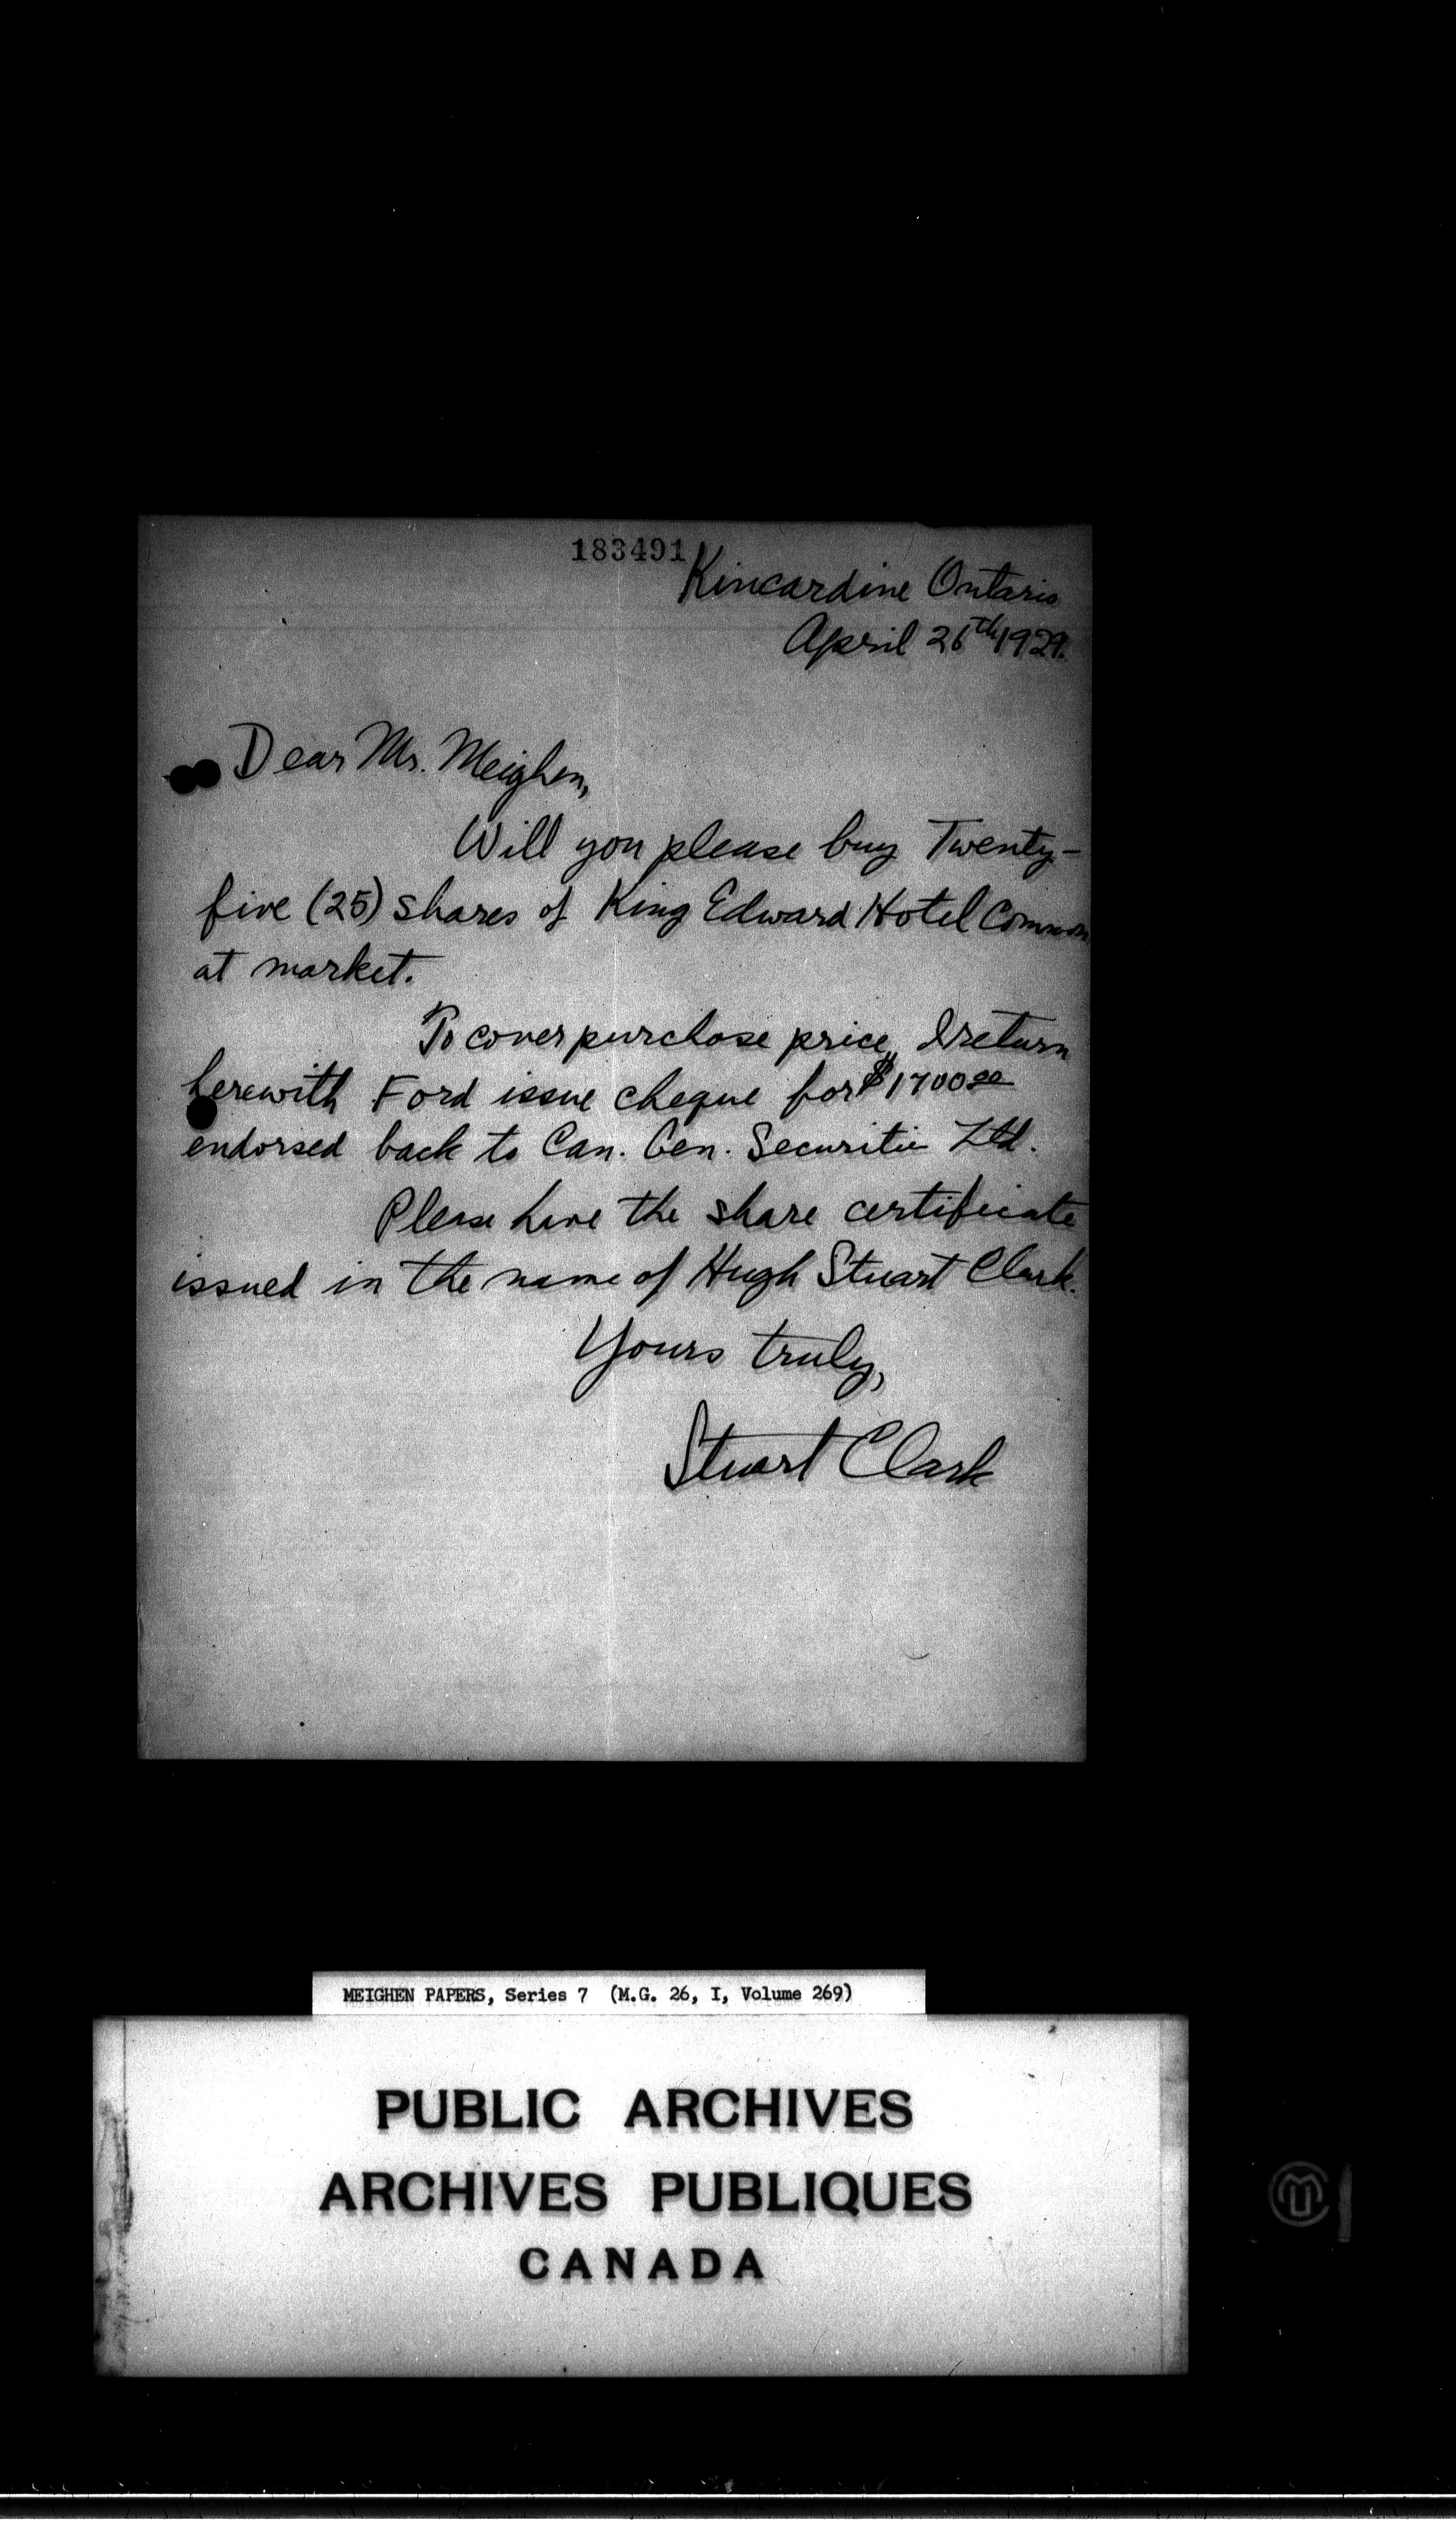 183491
Kincardine Ontario
April 26th 1929.
Dear Mr. Meighen,
Will you please buy Twenty-
five (25) shares of King Edward Hotel Common
at market.
To cover purchase price, I return
herewith Ford issue cheque for $1700.00
endorsed back to Can. Gen. Securitie Ltd.
Please have the share certificate
issued in the name of Hugh Stuart Clark.
Yours truly,
Stuart Clark
MEIGHEN PAPERS, Series 7 (M.G. 26, I, Volume 269)
PUBLIC ARCHIVES
ARCHIVES PUBLIQUES
CANADA